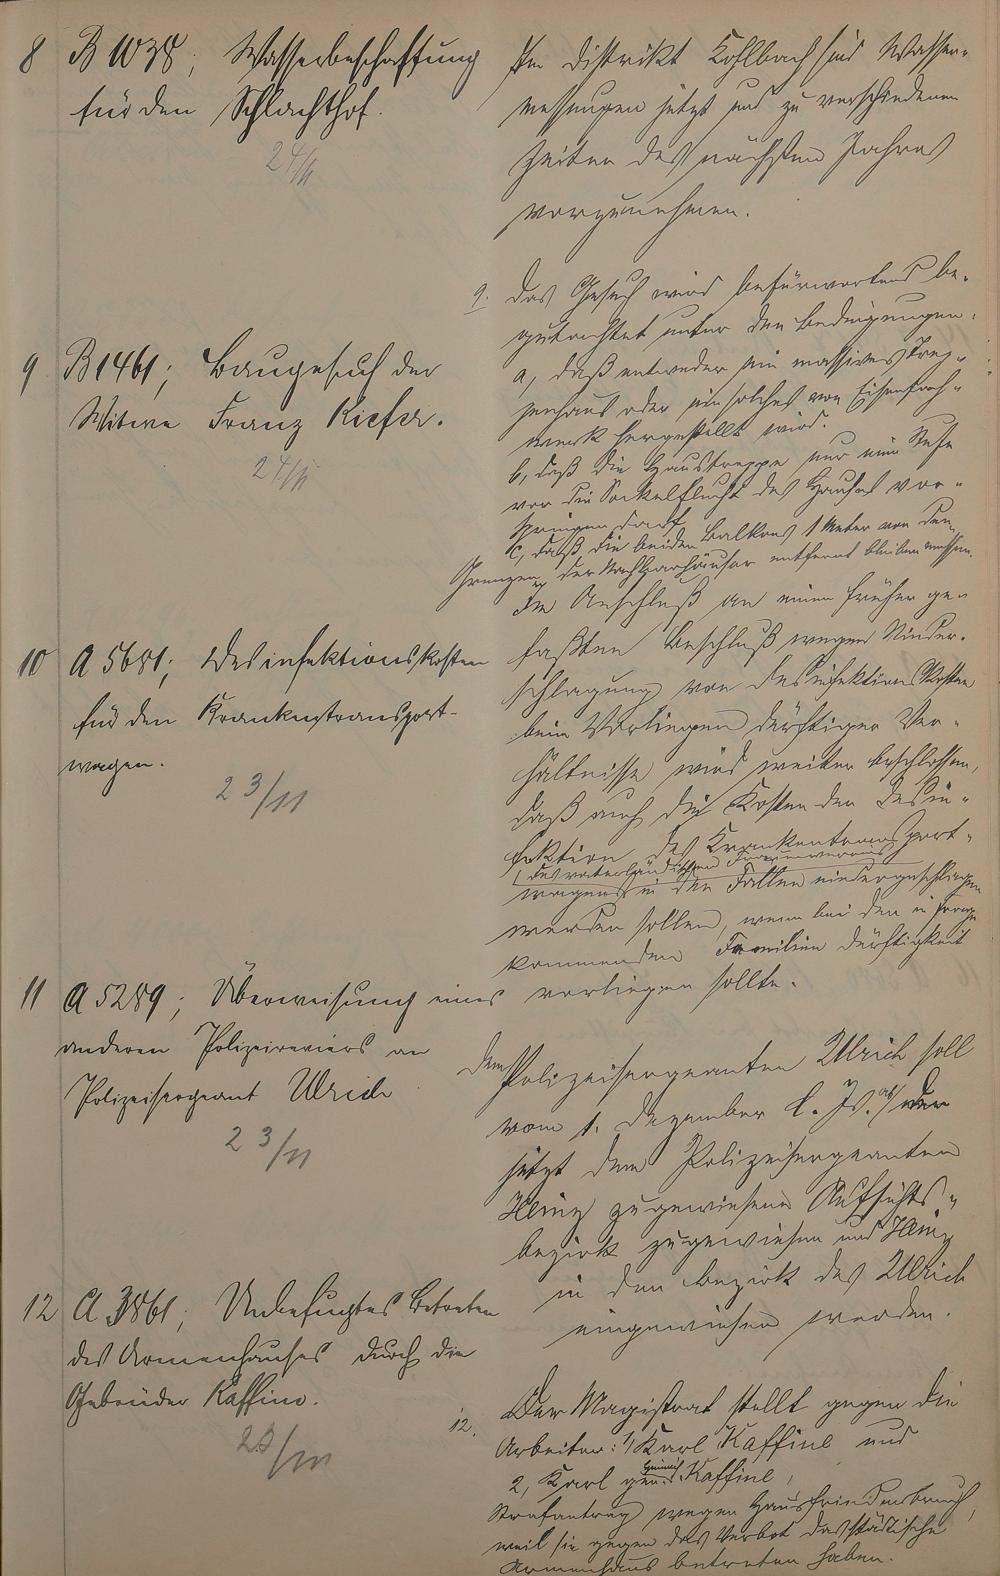 8 B 1038; Wasserbeschaffung
für den Schlachthof.
24/11
Im Distrikt Kohlbach sind Wasser-
messungen jetzt und zu verschiedenen
Zeiten des nächsten Jahres
vorzunehmen.
9 B 1461; Baugesuch der
Witwe Franz Kiefer.
24/11
9. Das Gesuch wird befürwortend be-
gutachtet unter den Bedingungen:
a, daß entweder ein massives Trep-
penhaus oder ein solches von Eisenfach-
werk hergestellt wird.
b, daß die Haustreppe nur eine Stufe
vor die Sockelflucht des Hauses vor-
springen darf,
c, daß die beiden Balkons 1 Meter von den
Grenzen der Nachbarhäuser entfernt bleiben müssen.
10 A 5681; Desinfektionskosten
für den Krankentransport-
wagen.
23/11
Im Anschluß an einen früher ge-
faßten Beschluß wegen Nieder-
schlagung von Desinfektionskosten
beim Vorliegen dürftiger Ver-
hältnisse wird weiter beschlossen,
daß auch die Kosten der Desin-
fektion des Krankentransport-
des vaterländischen Frauenvereins
wagens in den Fällen niedergeschlagen
werden sollen, wenn bei den in Frage
kommenden Familien Dürftigkeit
vorliegen sollte.
11 A 5289; Überweisung eines
anderen Polizeireviers an
Polizeisergeant Ulrich
23/11
Dem Polizeisergeanten Ulrich soll
vom 1. Dezember l. Js. ab der
jetzt dem Polizeisergeanten
zugewiesene Aufsichts-
bezirk zugewiesen und
in den Bezirk des Ulrich
eingewiesen werden.
12 A 3861; Unbefugtes Betreten
des Armenhauses durch die
Gebrüder Kaffine.
23/11
12. Der Magistrat stellt gegen die
Arbeiter: 1, Karl Kaffine und
2, Karl gen. Heinrich Kaffine,
Strafantrag wegen Hausfriedensbruch,
weil sie gegen das Verbot das städtische
Armenhaus betreten haben.